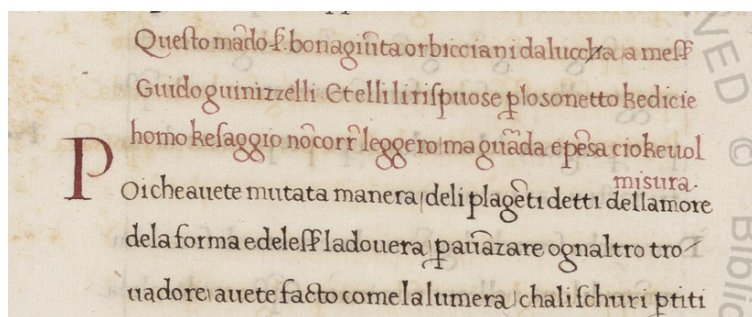 Questo mādo ẜ. bonagiūta orbicciani da luccha a meẜẜ
Guido guinizzelli. Et elli li rispuose ꝑ lo sonetto ke dicie
homo ke saggio nō corr̄ leggero ma gūada e pēsa cio ke uol
misura.
Poi che auete mutata manera deli plagēti detti dellamore
dela forma e deleẜẜ la douera ꝑ auāzare ognaltro tro
uadore auete facto come la lumera cha li schuri ꝑtiti
VED © Biblio